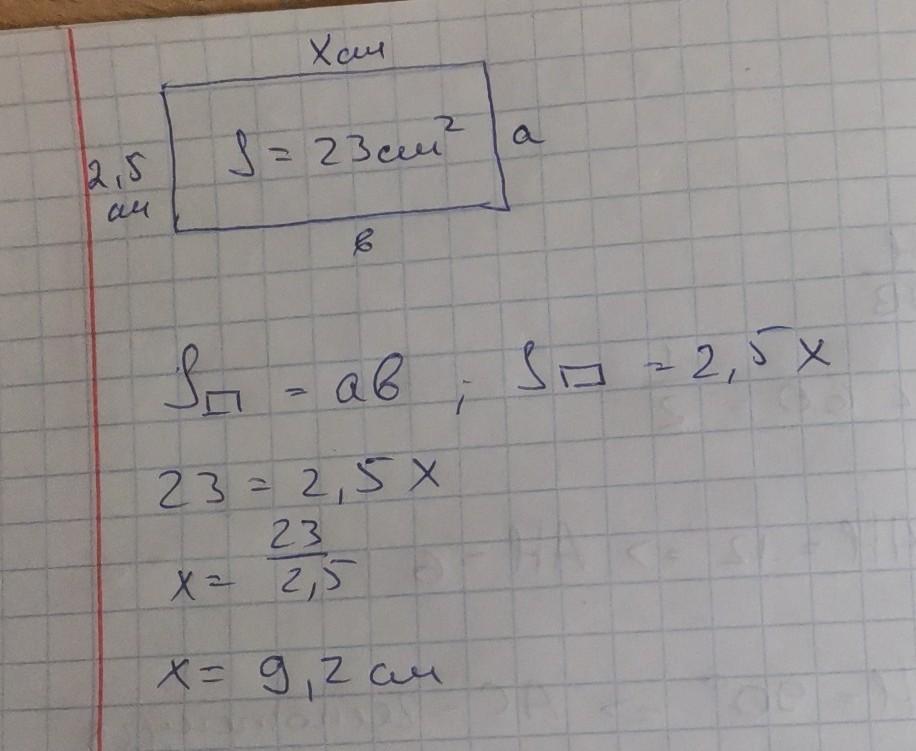 x см
2,5 см
S = 23 см²
a
в
S▭ = aв ; S▭ = 2,5 x
23 = 2,5 x
x = 23/2,5
x = 9,2 см